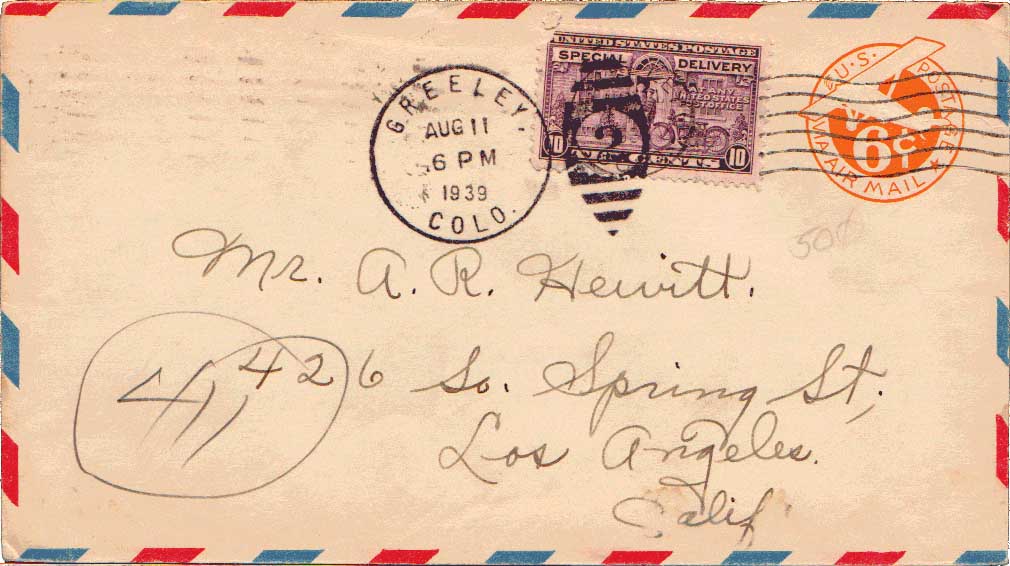 UNITED STATES POSTAGE
SPECIAL DELIVERY
AT ANY
UNITED STATES
POST OFFICE
10 TEN CENTS 10
GREELEY
AUG 11
6 PM
1939
COLO.
2
U.S. POSTAGE
6¢
VIA AIR MAIL
50¢
Mr. A. R. Hewitt.
426 So. Spring St.,
Los Angeles.
Calif